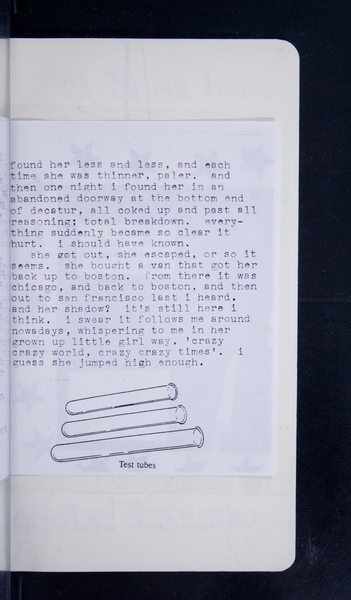 found her less and less, and each
time she was thinner, paler. and
then one night i found her in an
abandoned doorway at the bottom end
of decatur, all coked up and past all
reasoning; total breakdown. every-
thing suddenly became so clear it
hurt. i should have known.
she got out, she escaped, or so it
seems. she bought a van that got her
back up to boston. from there it was
chicago, and back to boston, and then
out to san francisco last i heard.
and her shadow? it's still here i
think. i swear it follows me around
nowadays, whispering to me in her
grown up little girl way, 'crazy
crazy world, crazy crazy times'. i
guess she jumped high enough.
Test tubes